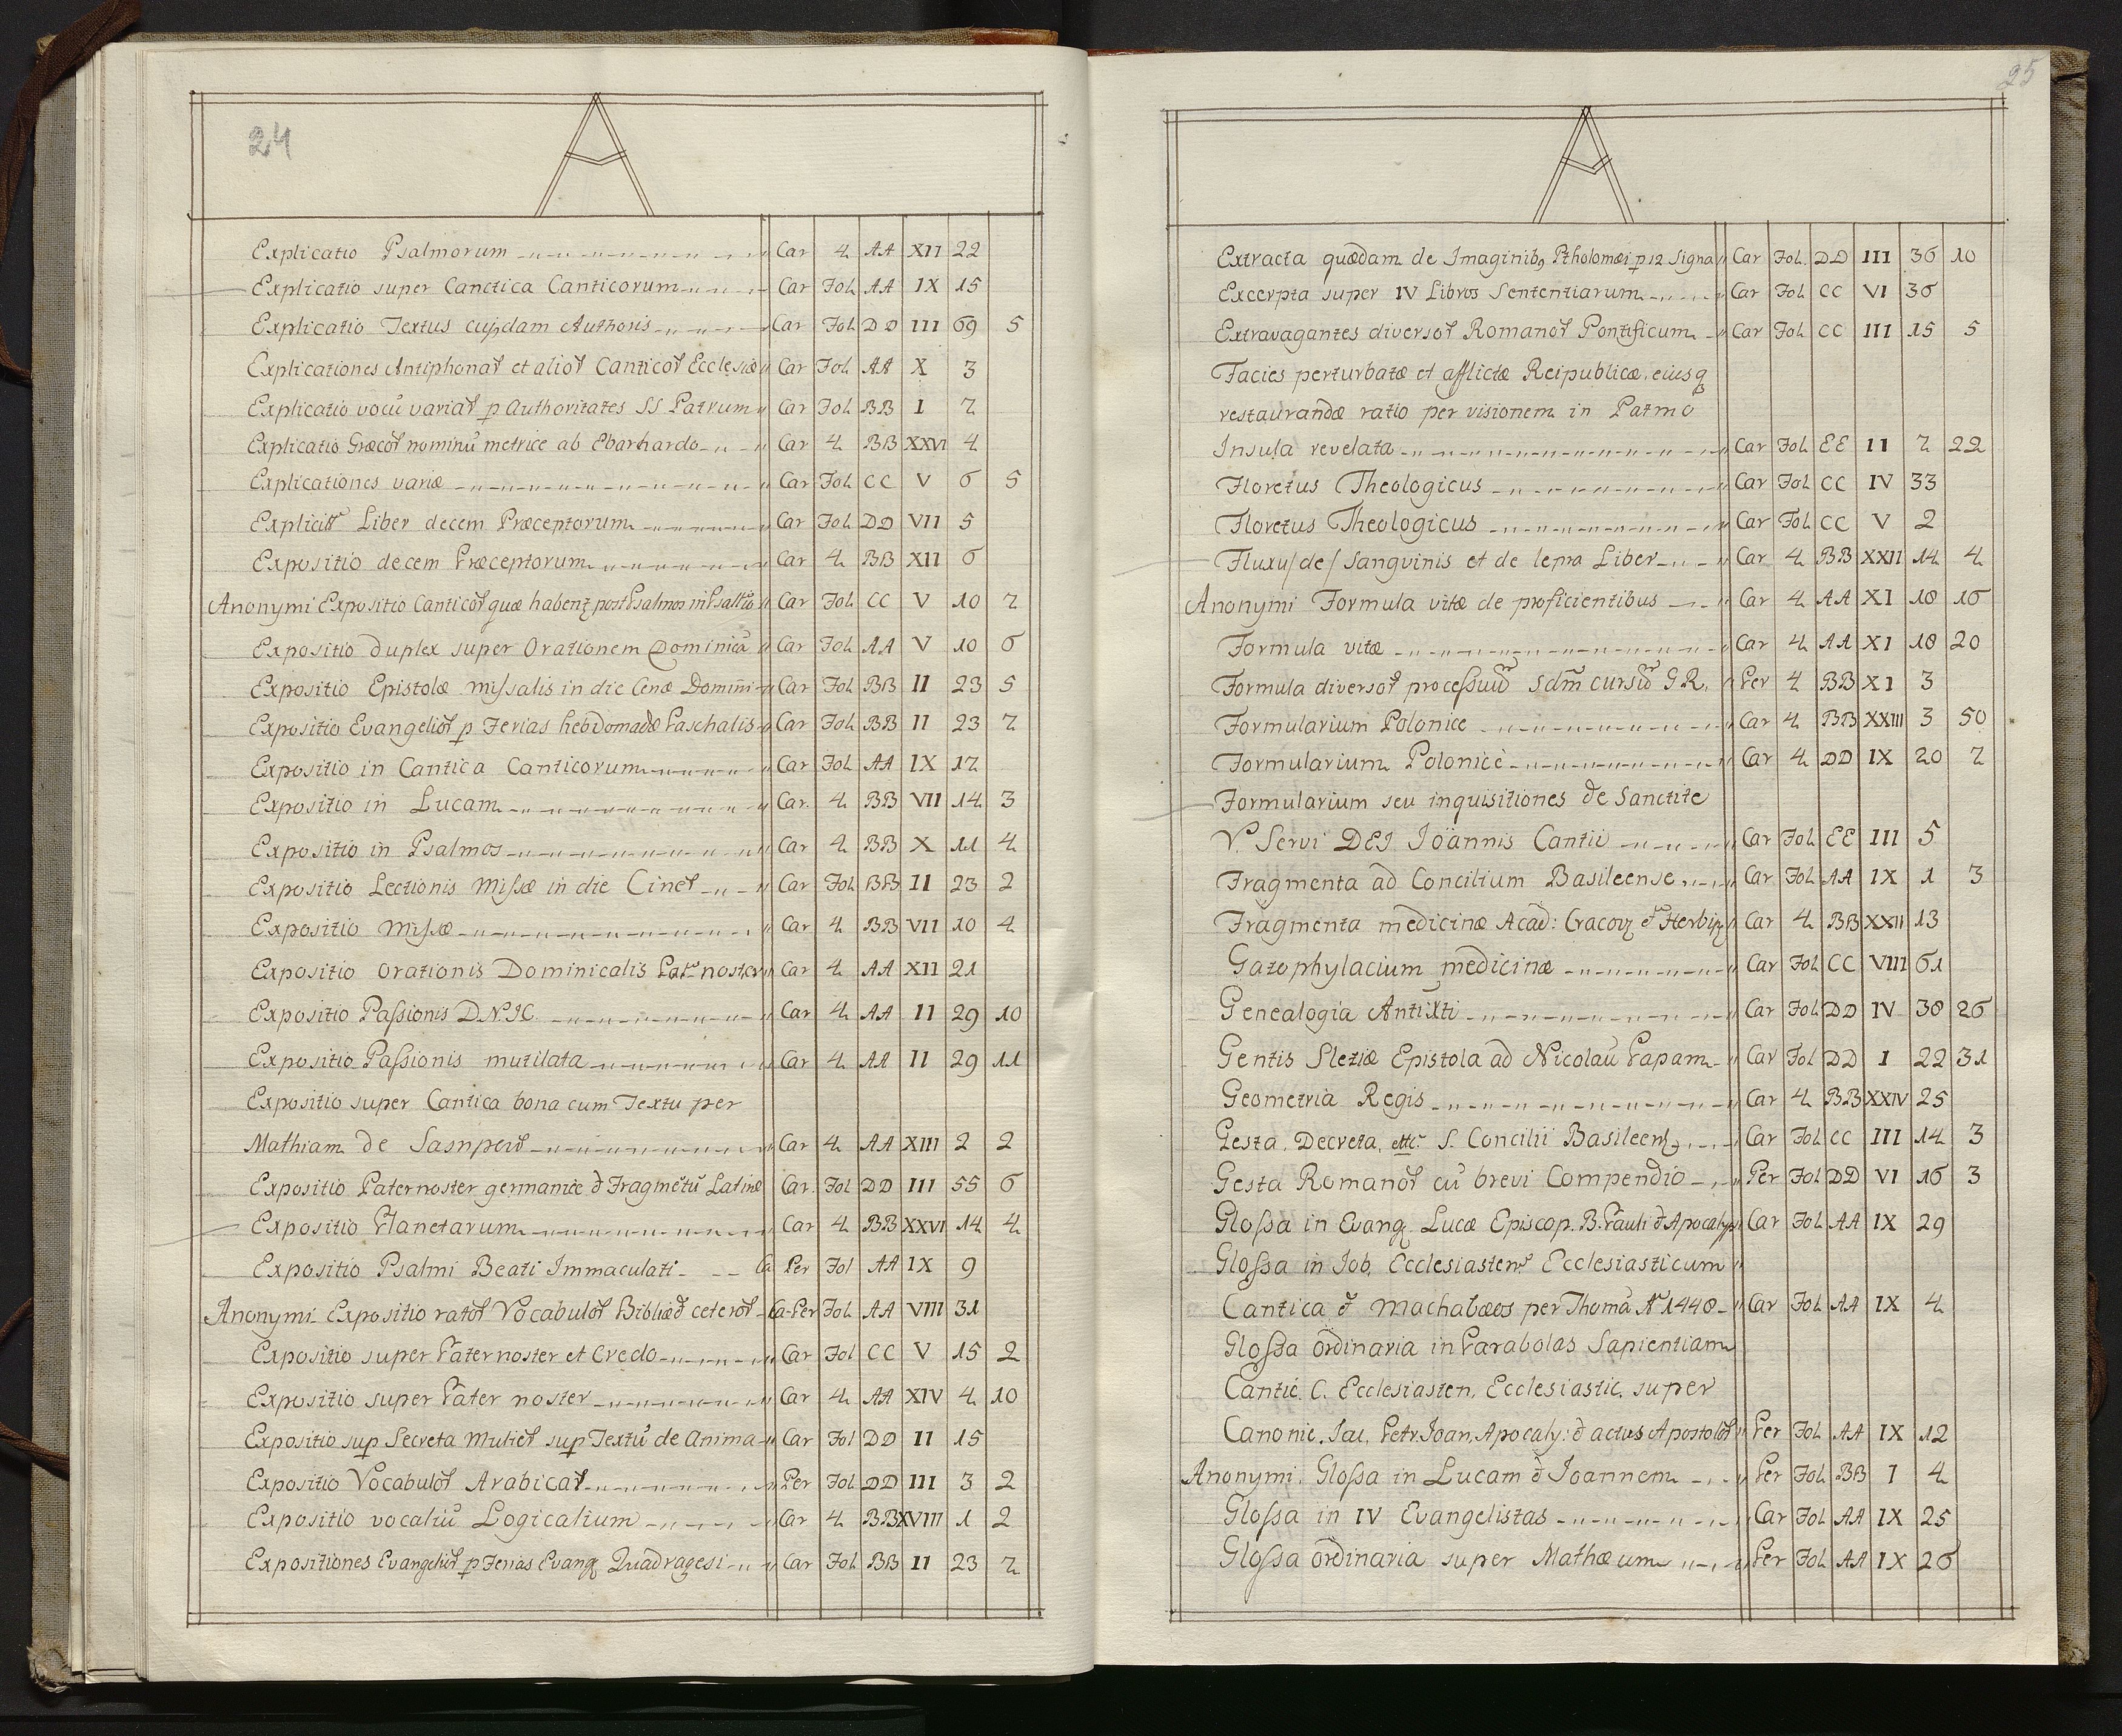 24
A
Explicatio Psalmorum Car 4 AA XII 22
Explicatio super Canctica Canticorum Car Fol AA IX 15
Explicatio Textus cujsdam Authoris Car Fol DD III 69 5
Explicationes Antiphonaꝝ et alioꝝ Canticoꝝ Ecclesiæ Car Fol AA X 3
Explicatio vocũ variaꝝ p Authoritates SS Patrum Car Fol BB I 7
Explicatio Græcoꝝ nominũ metrice ab Ebarhardo Car 4 BB XXVI 4
Explicationes variæ Car Fol CC V 6 5
Explicit Liber decem Præceptorum Car Fol DD VII 5
Expositio decem Præceptorum Car 4 BB XII 6
Anonymi Expositio Canticoꝝ quæ habenꝫ post Psalmos in Psaltio Car Fol CC V 10 7
Expositio duplex super Orationem Dominicã Car Fol AA V 10 6
Expositio Epistolæ Missalis in die Cenæ Domini Car Fol BB II 23 5
Expositio Evangelioꝝ p Ferias hebdomadæ Paschalis Car Fol BB II 23 7
Expositio in Cantica Canticorum Car Fol AA IX 17
Expositio in Lucam Car. 4 BB VII 14 3
Expositio in Psalmos Car 4 BB X 11 4
Expositio Lectionis Missæ in die Cineꝝ Car Fol BB II 23 2
Expositio Missæ Car 4 BB VII 10 4
Expositio Orationis Dominicalis Patr noster Car 4 AA XII 21
Expositio Passionis D.N.I.C. Car 4 AA II 29 10
Expositio Passionis mutilata Car 4 AA II 29 11
Expositio super Cantica bona cum Textu per
Mathiam de Sasnpew Car 4 AA XIII 2 2
Expositio Paternoster germanice & Fragmetũ Latine Car. Fol DD III 55 6
Expositio Planetarum Car 4 BB XXVI 14 4
Expositio Psalmi Beati Immaculati Ca Per Fol AA IX 9
Anonymi Expositio ratoꝝ Vocabuloꝝ Bibliæ & ceteroꝝ Ca-Per Fol AA VIII 31
Expositio super Pater noster et Credo Car Fol CC V 15 2
Expositio super Pater noster Car 4 AA XIV 4 10
Expositio sup Secreta Mulieꝝ sup Textũ de Anima Car Fol DD II 15
Expositio Vocabuloꝝ Arabicaꝝ Per Fol DD III 3 2
Expositio vocaliũ Logicalium Car 4 BB XVIII 1 2
Expositiones Evangelioꝝ p Ferias Evang Quadragesi Car Fol BB II 23 7
25
A
Extracta quædam de Imaginibꝫ Ptholomæi p 12 Signa Car Fol. DD III 36 10
Excerpta super IV Libros Sententiarum Car Fol CC VI 36
Extravagantes diversoꝝ Romanoꝝ Pontificum Car Fol CC III 15 5
Facies perturbatæ et afflictæ Reipublicæ, eiusq
restaurandæ ratio per visionem in Patmo
Insula revelata Car Fol EE II 7 22
Floretus Theologicus Car Fol CC IV 33
Floretus Theologicus Car Fol CC V 2
Fluxu /de/ Sanguinis et de lepra Liber Car 4 BB XXII 14 4
Anonymi Formula vitæ de proficientibus Car 4 AA XI 18 16
Formula vitæ Car 4 AA XI 18 20
Formula diversoꝝ processuũ Sdm cursũ G.R. Per 4 BB XI 3
Formularium Polonice Car 4 BB XXIII 3 50
Formularium Polonice Car 4 DD IX 20 7
Formularium seu inquisitiones de Sanctite
V. Servi DEI Ioannis Cantii Car Fol EE III 5
Fragmenta ad Concilium Basileense Car Fol AA IX 1 3
Fragmenta medicinæ Acad: Cracov & Herbip Car 4 BB XXII 13
Gazophylacium medicinæ Car Fol CC VIII 61
Genealogia Antixti Car Fol DD IV 38 26
Gentis Sleziæ Epistola ad Nicolaũ Papam Car Fol DD I 22 31
Geometria Regis Car 4 BB XXIV 25
Gesta, Decreta, etc. S. Concilii Basileen Car Fol CC III 14 3
Gesta Romanoꝝ cũ brevi Compendio Per Fol DD VI 16 3
Glossa in Evang. Lucæ Episcop. B. Pauli & Apocalyps Car Fol AA IX 29
Glossa in Iob, Ecclesiasten, Ecclesiasticum
Cantica & Machabæos per Thomã Aº 1448 Car Fol AA IX 4
Glossa ordinaria in Parabolas Sapientiam
Cantic. C. Ecclesiasten, Ecclesiastic. super
Canonic. Iac. Petr. Ioan, Apocaly: & actus Apostoloꝝ Per Fol AA IX 12
Anonymi. Glossa in Lucam & Ioannem Per Fol BB I 4
Glossa in IV Evangelistas Car Fol AA IX 25
Glossa ordinaria super Mathæum Per Fol AA IX 26